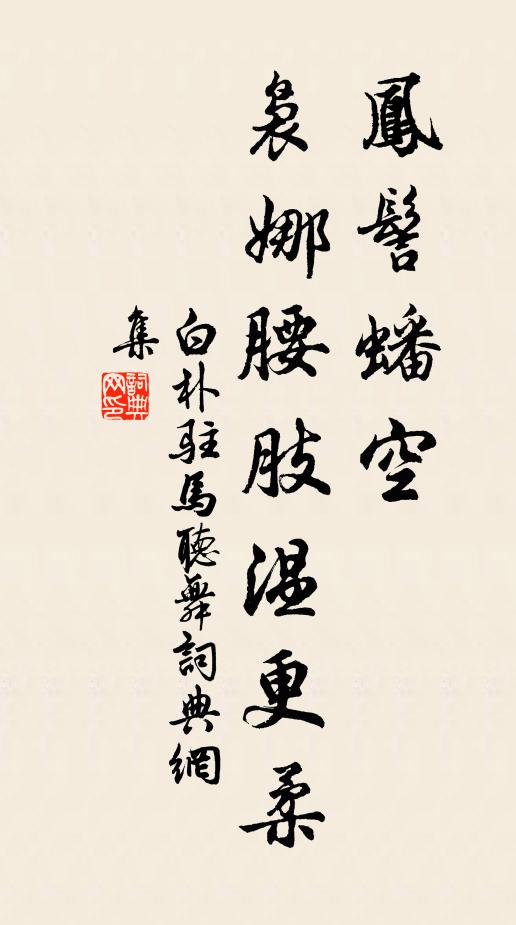 鳳髻蟠空
裊娜腰肢溫更柔
白朴駐馬聽舞詞典網
集
詞典
网印